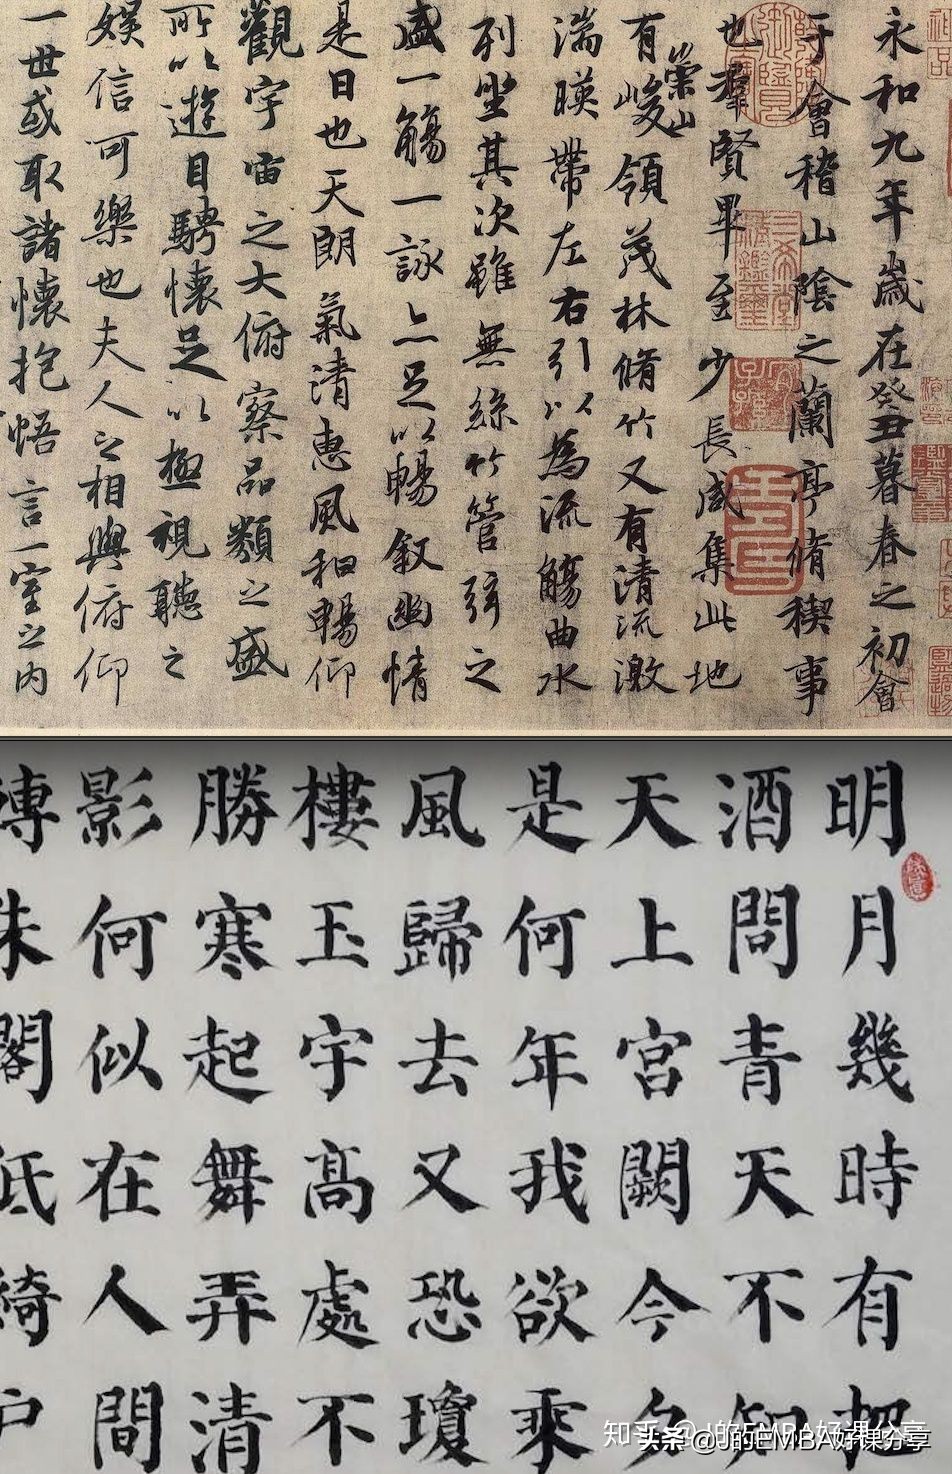 永和九年歲在癸丑暮春之初會
于會稽山陰之蘭亭脩稧事
也羣賢畢至少長咸集此地
有崇山峻領茂林脩竹又有清流激
湍暎帶左右引以為流觴曲水
列坐其次雖無絲竹管弦之
盛一觴一詠亦足以暢敘幽情
是日也天朗氣清惠風和暢仰
觀宇宙之大俯察品類之盛
所以遊目騁懷足以極視聽之
娛信可樂也夫人之相與俯仰
一世或取諸懷抱悟言一室之內
明月幾時有把
酒問青天不知
天上宮闕今夕
是何年我欲乘
風歸去又恐瓊
樓玉宇高處不
勝寒起舞弄清
影何似在人間
轉朱閣低綺戶
知乎 @J的EMBA好课分享
头条 @J的EMBA好课分享